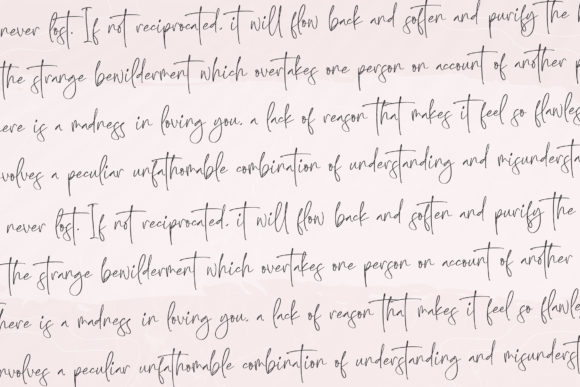 never lost. If not reciprocated, it will flow back and soften and purify the
the strange bewilderment which overtakes one person on account of another p
here is a madness in loving you, a lack of reason that makes it feel so flawles
volves a peculiar unfathomable combination of understanding and misundersta
never lost. If not reciprocated, it will flow back and soften and purify the
the strange bewilderment which overtakes one person on account of another
here is a madness in loving you, a lack of reason that makes it feel so flawles
nvolves a peculiar unfathomable combination of understanding and misunderst